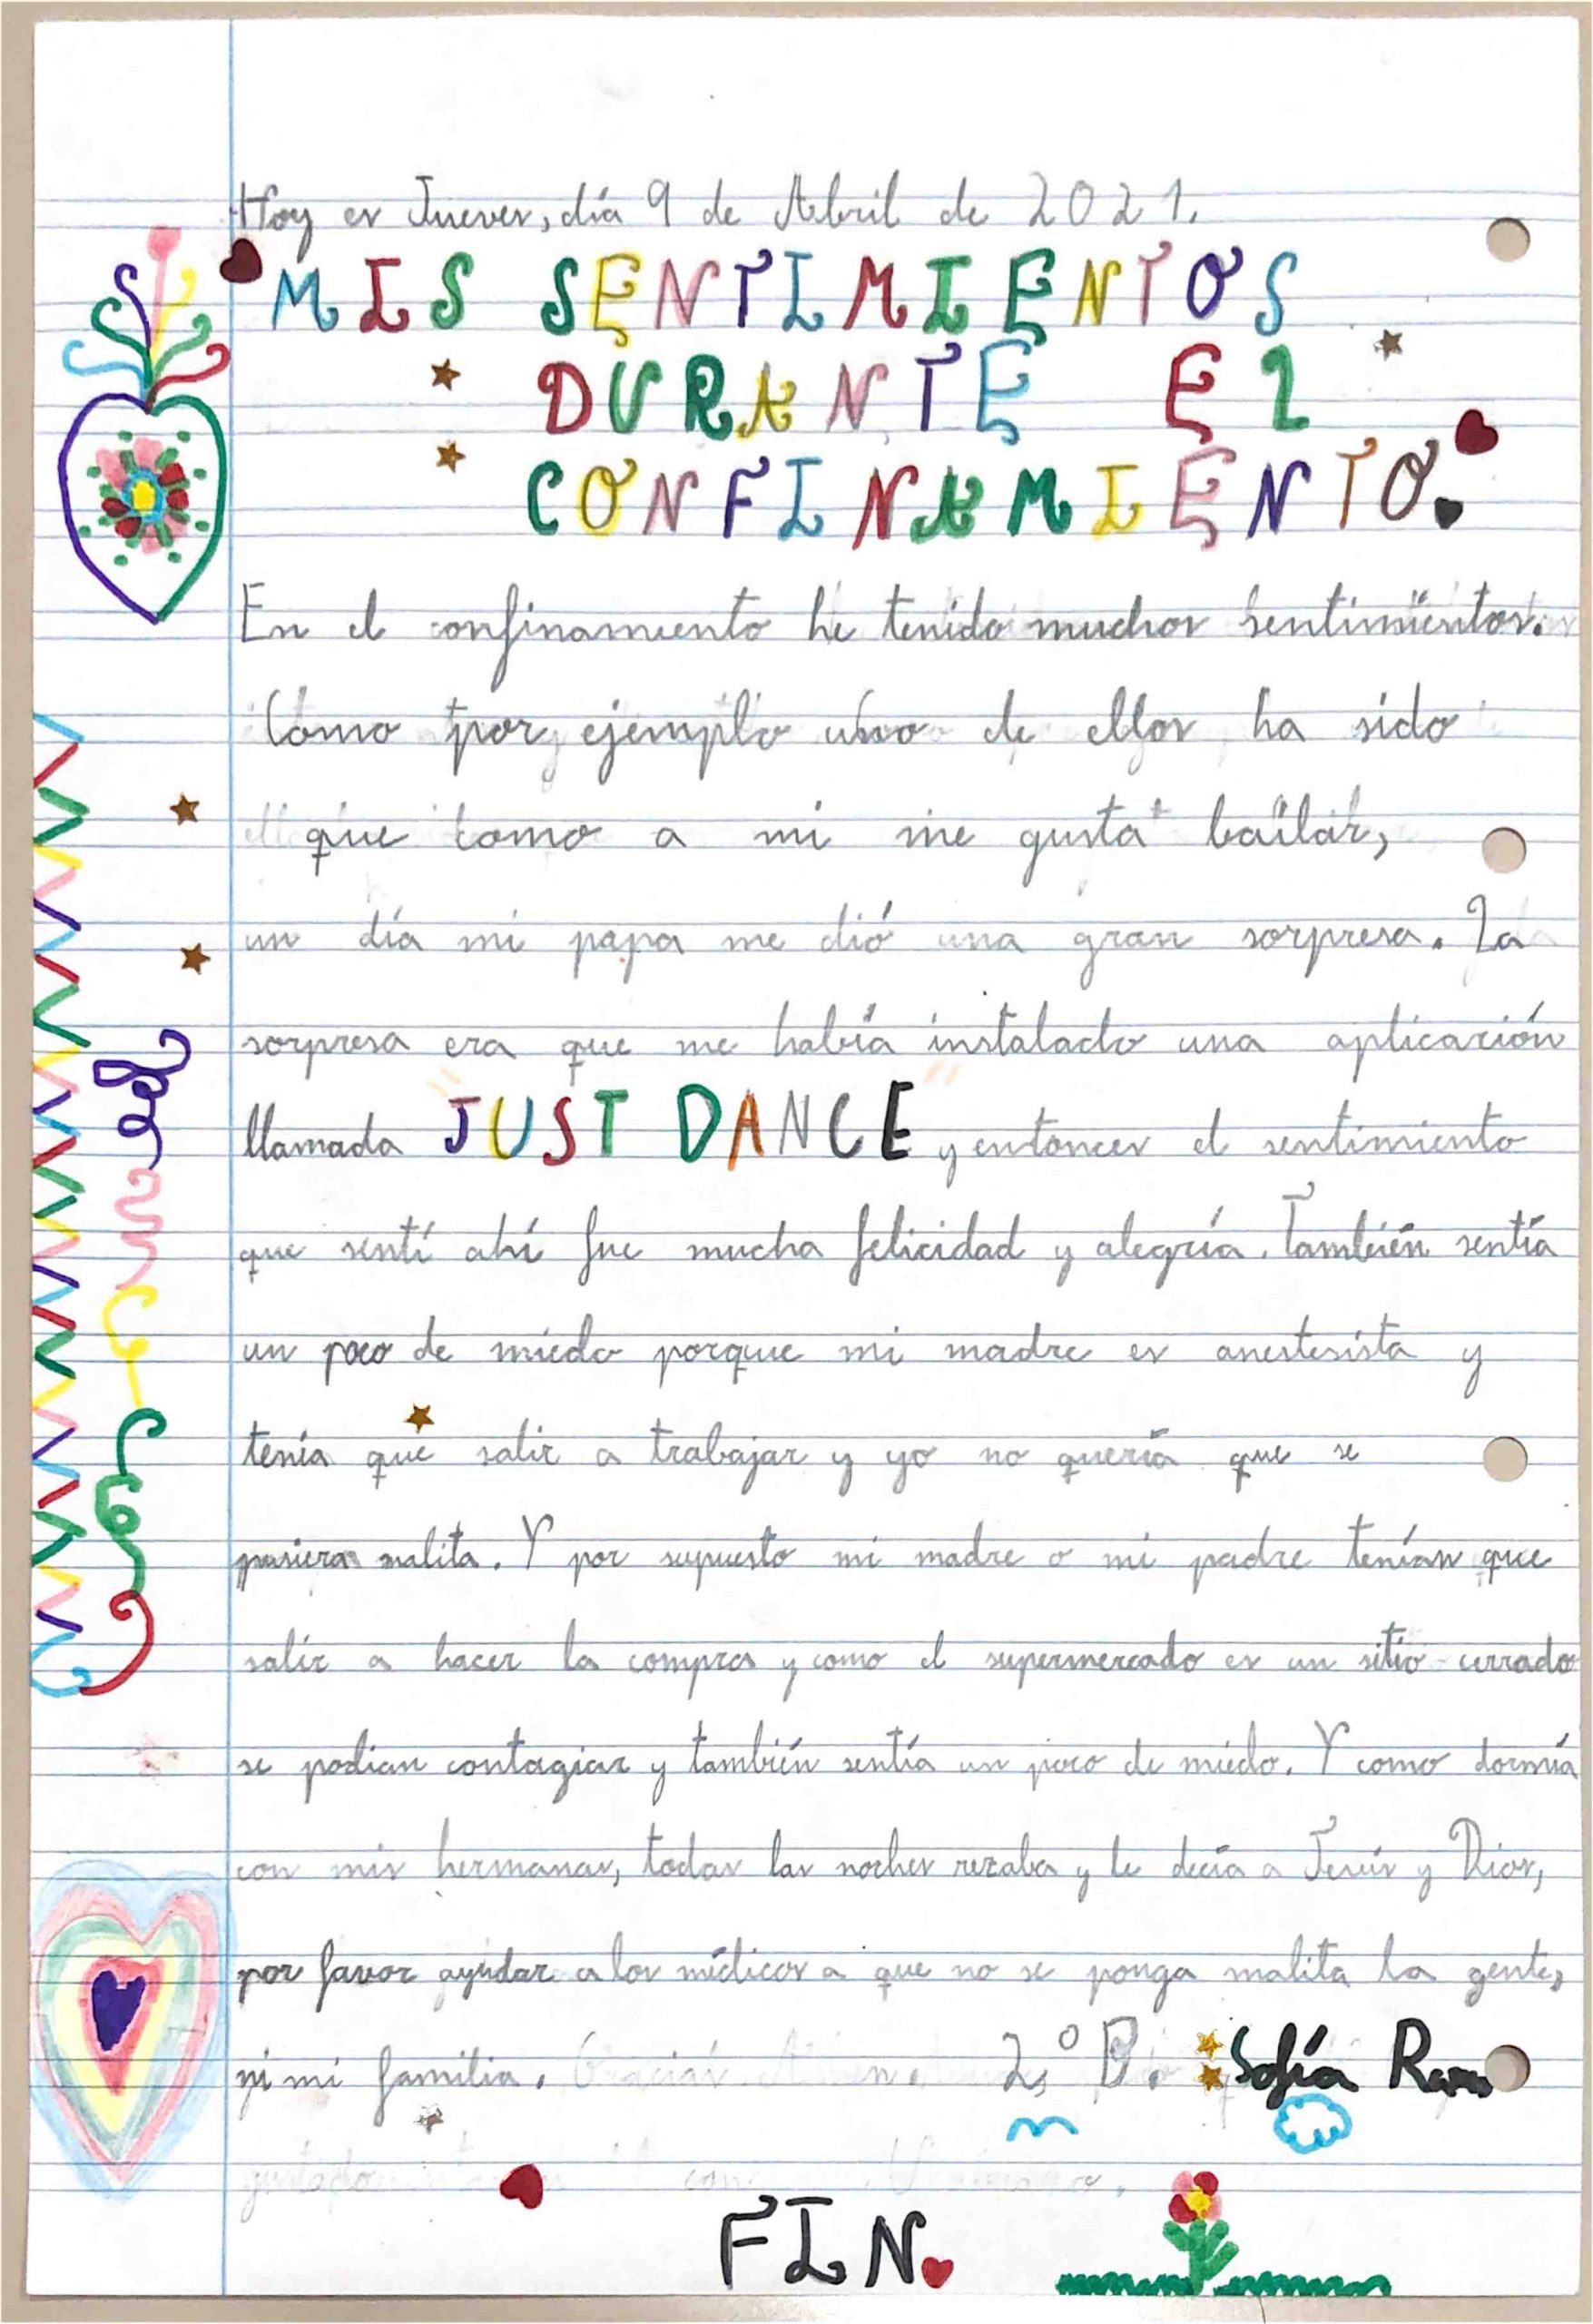 Hoy es Jueves, día 9 de Abril de 2021.
MIS SENTIMIENTOS
DURANTE EL
CONFINAMIENTO.
En el confinamiento he tenido muchos sentimientos.
Como por ejemplo uno de ellos ha sido
que como a mi me gusta bailar,
un día mi papa me dió una gran sorpresa. La
sorpresa era que me había instalado una aplicación
llamada "JUST DANCE" y entonces el sentimiento
que sentí ahí fue mucha felicidad y alegría. También sentía
un poco de miedo porque mi madre es anestesista y
tenía que salir a trabajar y yo no quería que se
pusiera malita. Y por supuesto mi madre o mi padre tenían que
salir a hacer la compra y como el supermercado es un sitio cerrado
se podian contagiar y también sentía un poco de miedo. Y como dormía
con mis hermanas, todas las noches rezaba y le decía a Jesús y Dios,
por favor ayudar a los médicos a que no se ponga malita la gente,
ni mi familia. Gracias. Amen. 2º B. Sofía
FIN.